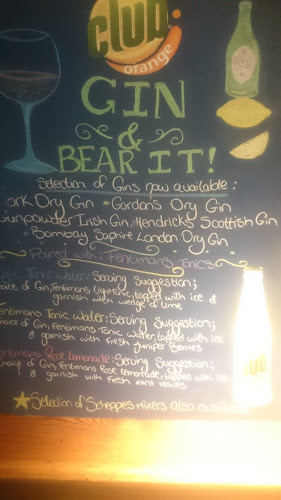 club
orange
GIN
&
BEAR IT!
Selection of Gins now available:
ork Dry Gin Gordons Dry Gin
Gunpowder Irish Gin, Hendricks Scottish Gin
Bombay Saphire London Dry Gin
Paired with: Fentimans Tonics
Light Tonic Water: Serving Suggestion;
oice of Gin, Fentimans Light Tonic, topped with ice &
garnish with wedge of lime
Fentimans Tonic Water: Serving Suggestion;
oice of Gin, Fentimans Tonic Water, topped with ice
& garnish with fresh Juniper Berries
Fentimans Rose Lemonade: Serving Suggestion;
Choice of Gin, Fentimans Rose Lemonade, topped with ice
& garnish with fresh mint leaves
Selection of Scheppes Mixers also availabl